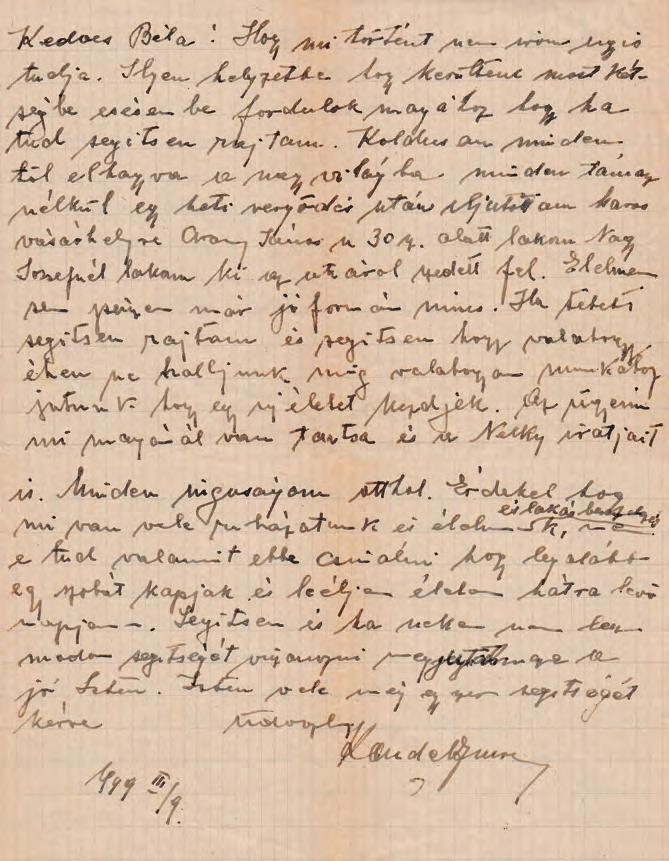 Kedves Béla! Hogy mi történt nem irom ugyis
tudja. Ilyen helyzetbe hogy kerültem most két-
ségbe esésembe fordulok magához hogy ha
tud segitsen rajtam. Koldusan minden
től elhagyva a nagy világba minden támasz
nélkül egy heti vergődés után eljutottam Maros
vásárhelyre Arany János u 30 sz. alatt lakom Nagy
Jozsefnél lakom ki az utcáról szedett fel. Élelmem
sem pénzem már jóformán nincs. Ha teheti
segitsen rajtam és segitsen hogy valahogy
éhen ne halljunk mig valahogyan munkához
jutunk hogy egy uj életet kezdjek. Az ügyeim
mi magánál van tartsa és a Nelky iratjait
is. Minden ingoságom otthol. Érdekel hogy
és lakás berendezés
mi van vele ruházatunk és élelmünk, ne
e tud valamit ebbe csinálni hogy legalább
egy szobát kapjak és leéljem életem hátra levő
napjaim. Segitsen is ha nekem nem lesz
modom segitségét viszonozni a
jó Isten. Isten vele még egyszer segitségét
kérve üdvözli
Kandel Imre
1949 III/9.